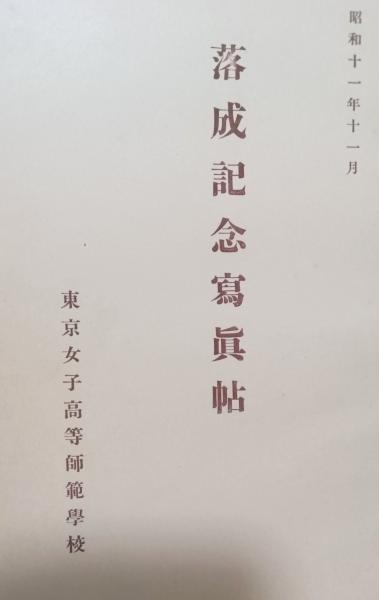 昭和十一年十一月
落成記念寫眞帖
東京女子高等師範學校